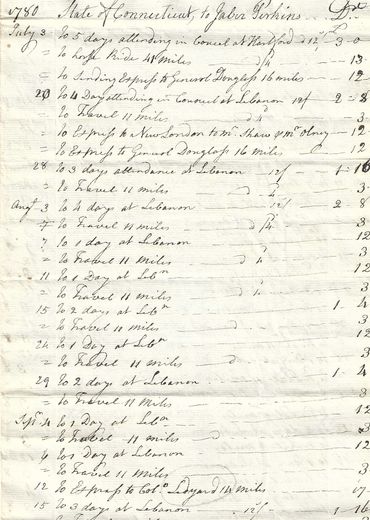 1780 State of Connecticut, to Jabez Perkins Dr
July 3 to 5 days attending in Councel at Hartford 12/ 3 - 0
= to horse Ride 41 miles d/4 13
= to Sending Express to General Douglass 16 miles 12
20 to 4 Day attending in Councel at Lebanon 12/ 2 - 8
= to Travel 11 miles d 4 3
= to Express to New London to Mr Shaw & Mr Olney 12
= to Express to General Douglass 16 miles 12
28 to 3 days attendance at Lebanon 12/ 1 - 16
= to Travel 11 miles d 4 3
Augt 3 to 4 days at Lebanon 12/ 2 8
= to Travel 11 miles d/4 3
7 to 1 day at Lebanon 12
= to Travel 11 miles d 4 3
11 to 1 Day at Lebn 12
= to Travel 11 miles d 4 3
15 to 2 days at Lebn 1 - 4
= to Travel 11 miles d 3
24 to 1 Day at Lebn 12
= to Travel 11 miles d 3
29 to 2 days at Lebanon 1 - 4
= to Travel 11 Miles 3
Sept 4 to 1 Day at Lebn 12
= to Travel 11 miles d 3
to 1 Day at Lebanon 12
= to Travel 11 Miles 3
12 to Express to Colo Ledyard 14 miles
15 to 3 days at Lebanon 12/ 1 - 16